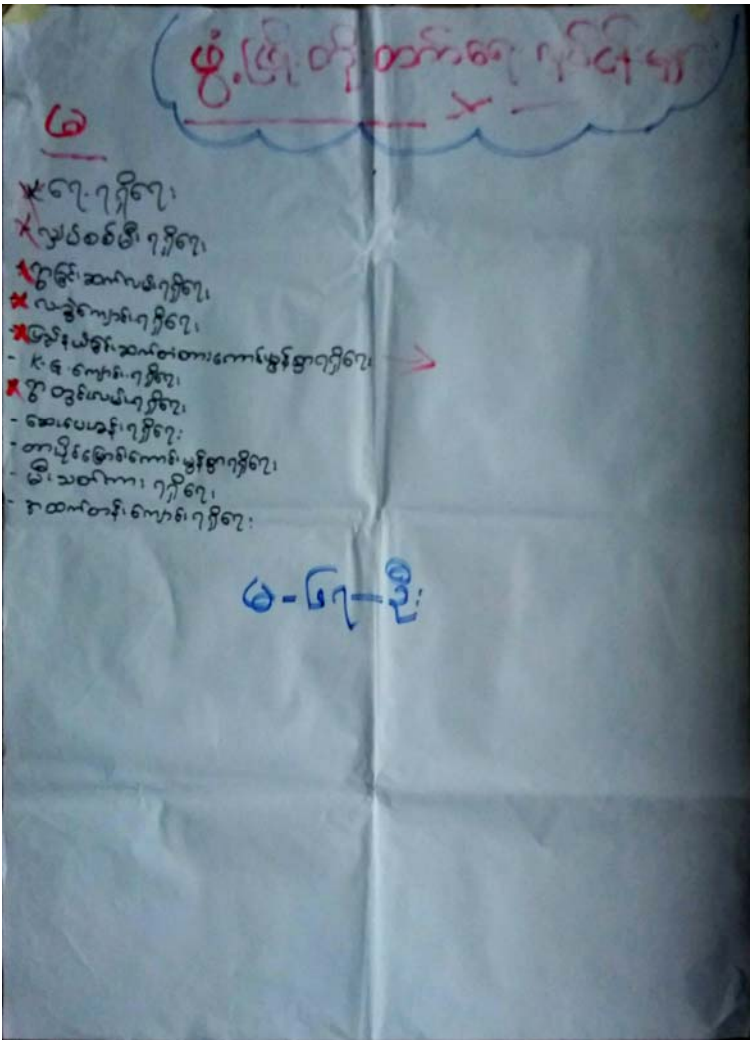 ဖွံ့ဖြိုးတိုးတက်ရေးလုပ်ငန်းများ
မ
× ရေ ရရှိရေး
× လျှပ်စစ်မီး ရရှိရေး
× ရွာချင်းဆက်လမ်းရရှိရေး
× လခွဲကျောင်းရရှိရေး
× မြို့နယ်ချင်းဆက်တံတားကောင်းမွန်စွာရရှိရေး →
- K.G ကျောင်းရရှိရေး
× ရွာတွင်းလမ်းရရှိရေး
- ဆေးပေးခန်းရရှိရေး
- တာပိုင်မြောင်းကောင်းမွန်စွာရရှိရေး
- မီးသတ်ကား ရရှိရေး
- အထက်တန်းကျောင်းရရှိရေး
မ - ၆၇ - ဦး